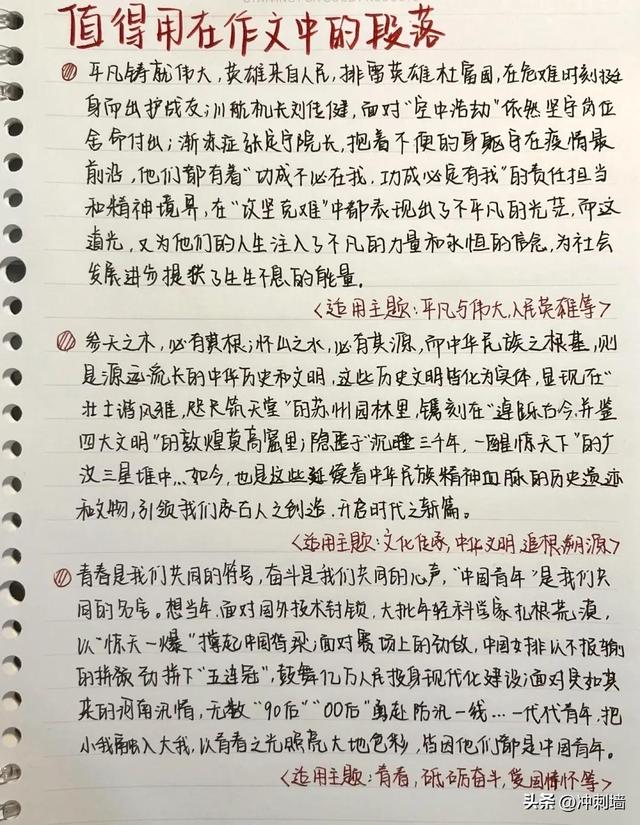 值得用在作文中的段落
平凡铸就伟大,英雄来自人民,排雷英雄杜富国,在危难时刻挺
身而出护战友;川航机长刘传健,面对“空中浩劫”依然坚守岗位
舍命付出;渐冻症张定宇院长,拖着不便的身躯守在疫情最
前沿,他们都有着“功成不必在我,功成必定有我”的责任担当
和精神境界,在“攻坚克难”中都表现出了不平凡的光芒,而这
道光,又为他们的人生注入了不凡的力量和永恒的信念,为社会
发展进步提供了生生不息的能量。
<适用主题:平凡与伟大,人民英雄等>
参天之木,必有其根;怀山之水,必有其源,而中华民族之根基,则
是源远流长的中华历史和文明,这些历史文明皆化为实体,显现在“
壮士谐风雅,咫尺筑天堂”的苏州园林里,镌刻在“连跃古今,并鉴
四大文明”的敦煌莫高窟里;隐匿于“沉睡三千年,一醒惊天下”的广
汉三星堆中...如今,也是这些延续着中华民族精神血脉的历史遗迹
和文物,引领我们承古人之创造,开启时代之新篇。
<适用主题:文化传承,中华文明,追根溯源>
青春是我们共同的符号,奋斗是我们共同的心声,“中国青年”是我们共
同的名字。想当年,面对国外技术封锁,大批年轻科学家扎根荒漠,
以“惊天一爆”撑起中国脊梁;面对赛场上的劲敌,中国女排以不服输
的拼张劲拼下“五连冠”,鼓舞亿万人民投身现代化建设;面对突如其
来的洞庭汛情,无数“90后”“00后”勇赴防汛一线...一代代青年,把
小我融入大我,以青春之光照亮大地色彩,皆因他们都是中国青年。
<适用主题:青春,砥砺奋斗,爱国情怀等>
头条 @冲刺墙